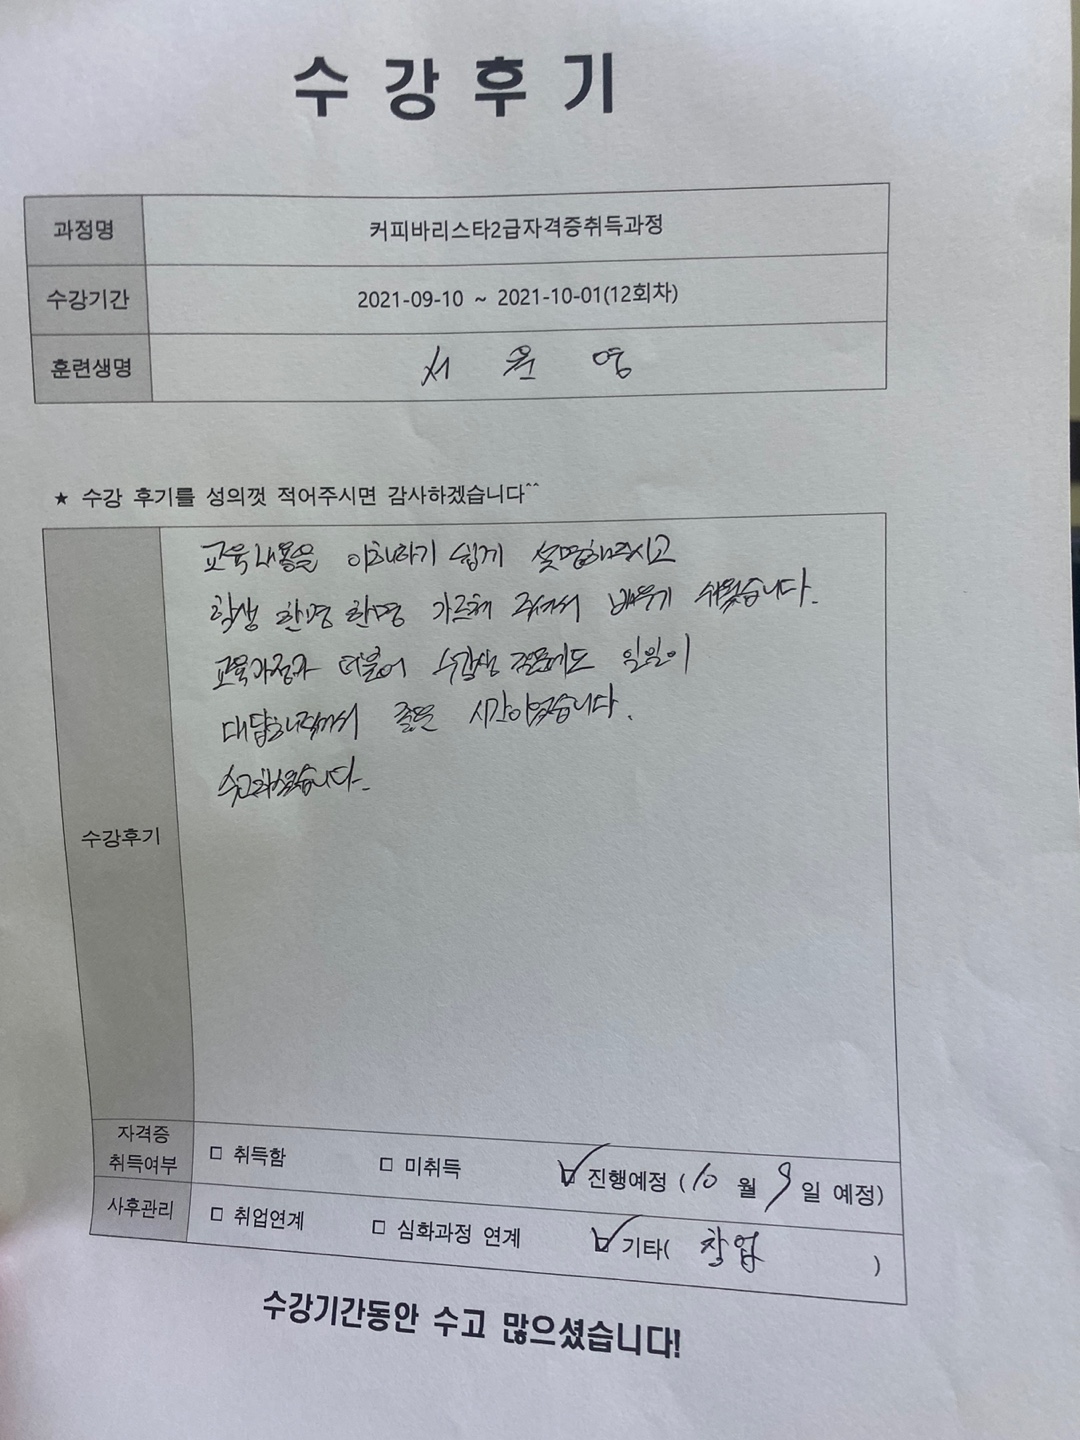 수강후기
과정명 커피바리스타2급자격증취득과정
수강기간 2021-09-10 ~ 2021-10-01(12회차)
훈련생명 서 윤 영
★ 수강 후기를 성의껏 적어주시면 감사하겠습니다^^
교육내용을 이해하기 쉽게 설명해주시고
학생 한명 한명 가르쳐 주셔서 배우기 쉬웠습니다.
교육과정과 더불어 수강생 질문에도 일일이
대답해주셔서 좋은 시간이었습니다.
수고하셨습니다.
수강후기
자격증
취득여부 □ 취득함 □ 미취득 ☑ 진행예정 (10 월 9일 예정)
사후관리 □ 취업연계 □ 심화과정 연계 ☑ 기타( 창업 )
수강기간동안 수고 많으셨습니다!